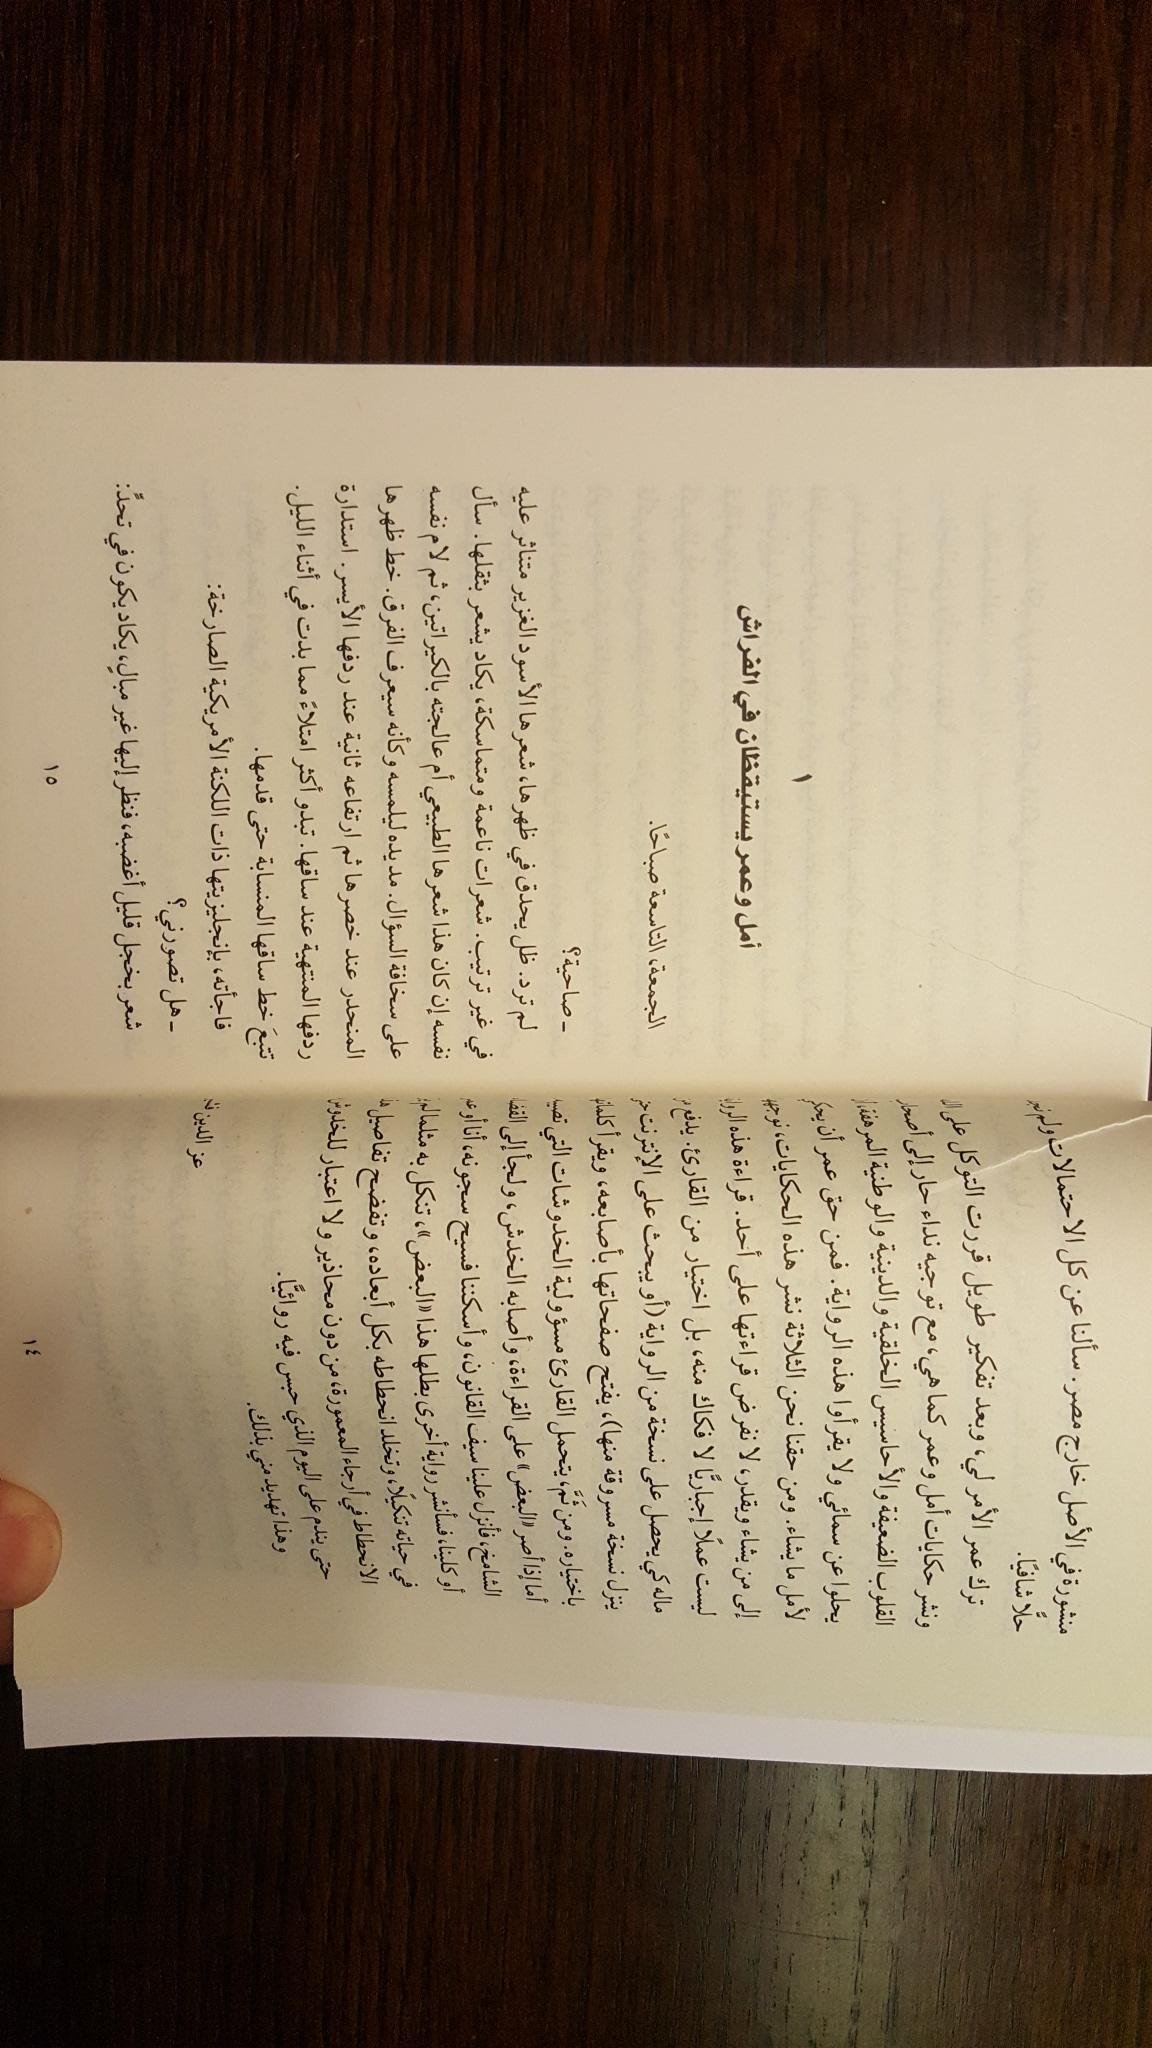 منشورة في الأصل خارج مصر. سألنا عن كل الاحتمالات ولم نجد
حلًّا شافيًا.
ترك عمر الأمر لي، وبعد تفكير طويل قررت التوكل على
ونشر حكايات أمل وعمر كما هي، مع توجيه نداء حار إلى
القلوب الضعيفة والأحاسيس الخلقية والدينية والوطنية المرهفة
يحلوا عن سمائي ولا يقرأوا هذه الرواية. فمن حق عمر أن يحكي
لأمل ما يشاء. ومن حقنا نحن الثلاثة نشر هذه الحكايات، نوجهها
إلى من يشاء ويقدر، لا نفرض قراءتها على أحد. قراءة هذه
ليست عملًا إجباريًا لا فكاك منه، بل اختيار من القارئ. يدفع
ماله كي يحصل على نسخة من الرواية (أو يبحث على الإنترنت
ينزل نسخة مسروقة منها)، يفتح صفحاتها بأصابعه، ويقرأ كلماتها
باختياره. ومن ثَمَّ، يتحمل القارئ مسؤولية الخدوشات التي
أما إذا أصر «البعض» على القراءة، وأصابه الخدش، ولجأ إلى
الشامخ، فأنزل علينا سيف القانون، وأسكننا فسيح سجونه، أنا أو
أو كلينا، فسأنشر رواية أخرى بطلها هذا «البعض»، تنكل به مثلما لم
في حياته تنكيلًا، وتخلد انحطاطه بكل أبعاده، وتفضح تفاصيل
الانحطاط في أرجاء المعمورة، من دون محاذير ولا اعتبار
حتى يندم على اليوم الذي حبس فيه روائيًّا.
وهذا تهديد مني بذلك.
عز الدين
١٤
١
أمل وعمر يستيقظان في الفراش
الجمعة، التاسعة صباحًا.
ـ صاحية؟
لم ترد. ظل يحدق في ظهرها، شعرها الأسود الغزير متناثر عليه
في غير ترتيب. شعرات ناعمة ومتماسكة، يكاد يشعر بثقلها. سأل
نفسه إن كان هذا شعرها الطبيعي أم عالجته بالكيراتين، ثم لام نفسه
على سخافة السؤال. مد يده ليلمسه وكأنه سيعرف الفرق. خط ظهرها
المنحدر عند خصرها ثم ارتفاعه ثانية عند ردفها الأيسر. استدارة
ردفها المنتهية عند ساقها. تبدو أكثر امتلاءً مما بدت في أثناء الليل.
تتبعَ خط ساقها المنسابة حتى قدمها.
فاجأته، بإنجليزيتها ذات اللكنة الأمريكية الصارخة:
ـ هل تصورني؟
شعر بخجل قليل أغضبه، فنظر إليها غير مبالٍ، يكاد يكون في تحدٍّ:
١٥